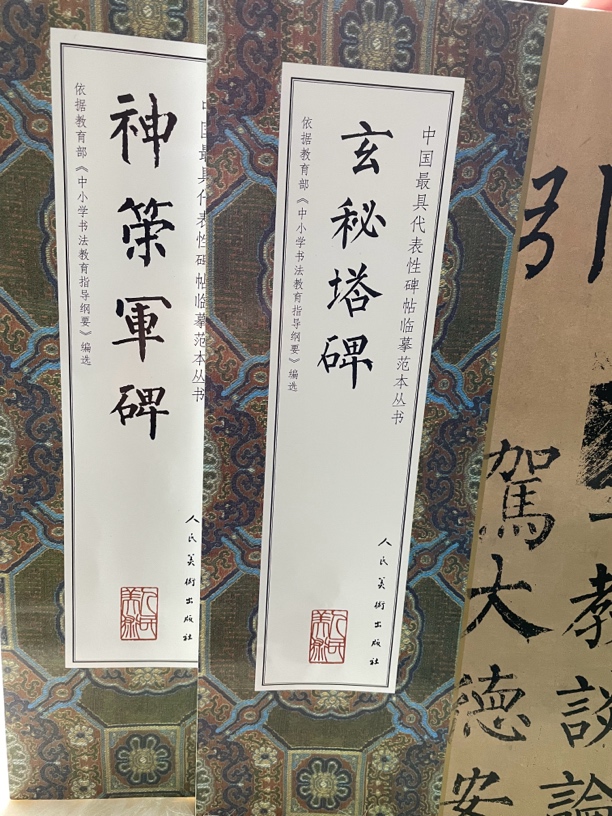 神策軍碑
中国最具代表性碑帖临摹范本丛书
依据教育部《中小学书法教育指导纲要》编选
人民美術出版社
玄秘塔碑
中国最具代表性碑帖临摹范本丛书
依据教育部《中小学书法教育指导纲要》编选
人民美術出版社
人民美術
引
駕大德安
教談論